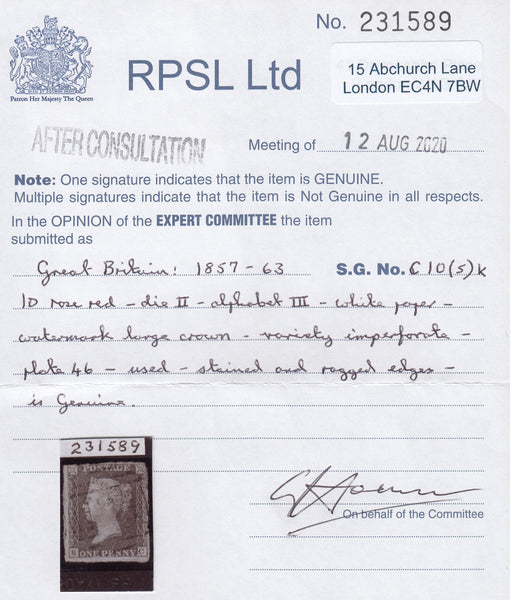 No. 231589
Patron Her Majesty The Queen
RPSL Ltd
15 Abchurch Lane
London EC4N 7BW
AFTER CONSULTATION
Meeting of 12 AUG 2020
Note: One signature indicates that the item is GENUINE.
Multiple signatures indicate that the item is Not Genuine in all respects.
In the OPINION of the EXPERT COMMITTEE the item
submitted as
Great Britain: 1857-63 S.G. No. C10(5)k
1D rose red - die II - alphabet III - white paper -
watermark large crown - variety imperforate -
plate 46 - used - stained and ragged edges -
is Genuine.
231589
POSTAGE
ONE PENNY C
On behalf of the Committee